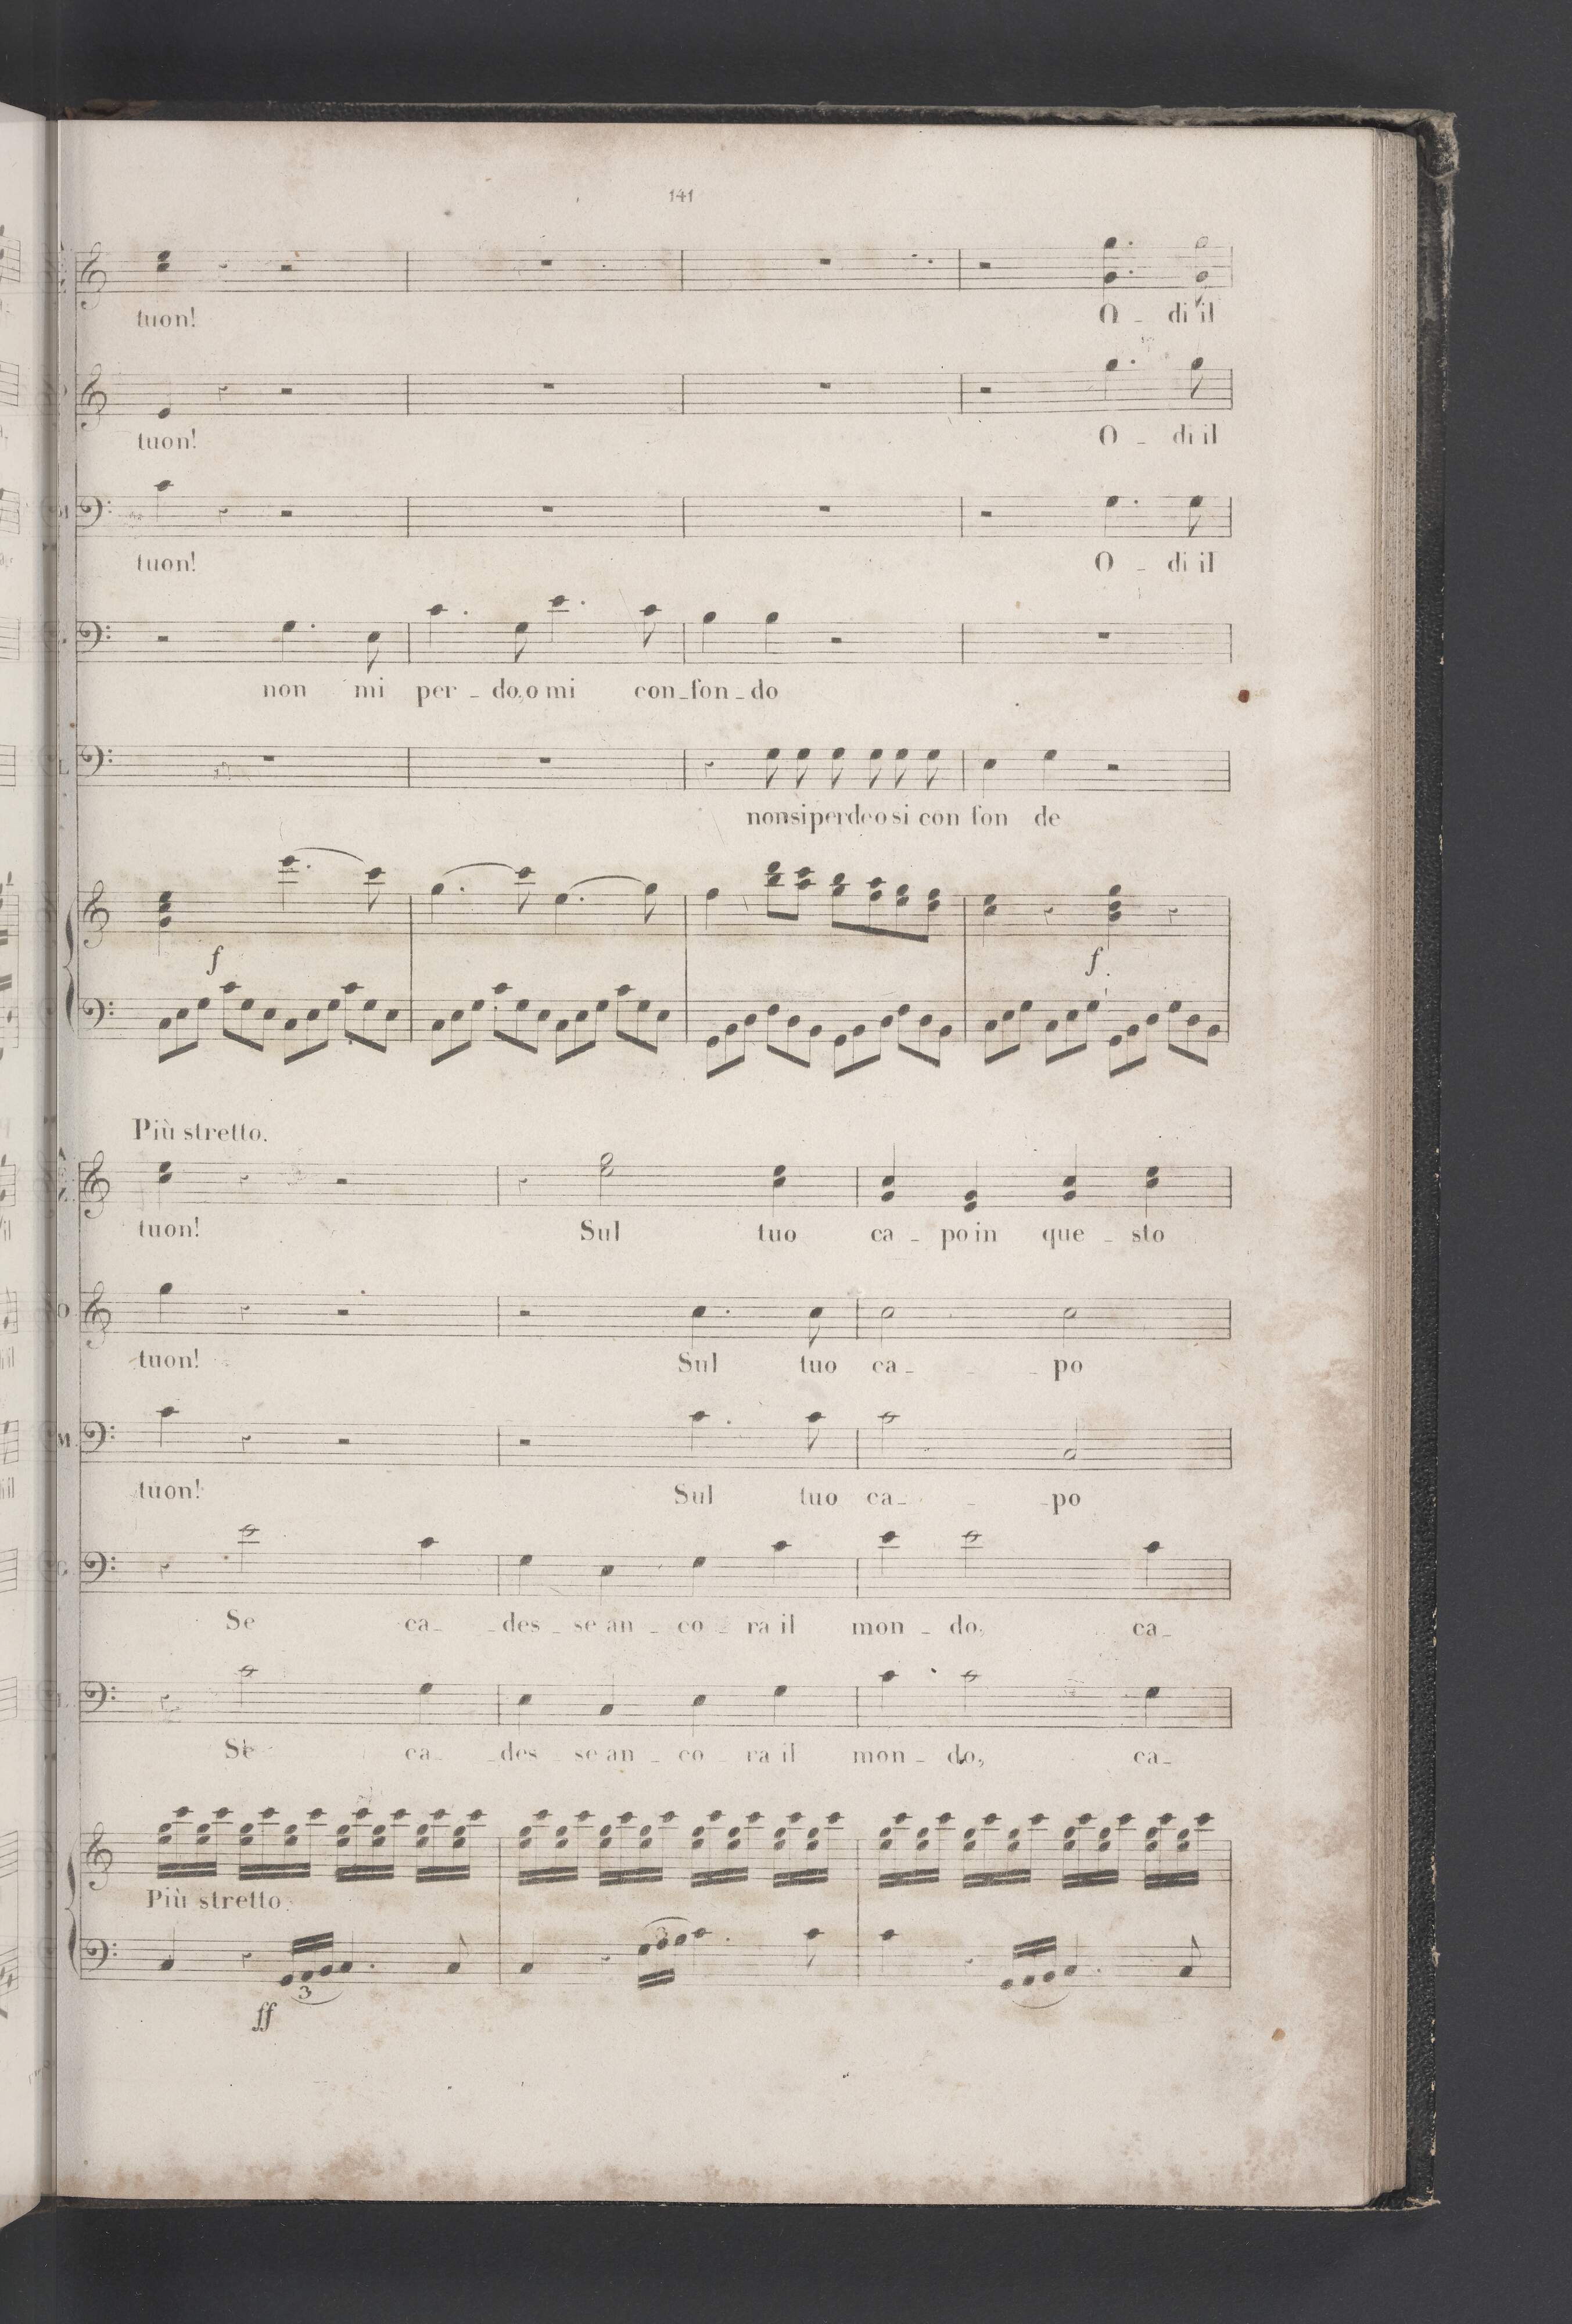 141
tuon! O - di il
tuon! O - di il
tuon! O - di il
non mi per - do, o mi con - fon - do
non si perde o si con fon de
f f
Più stretto.
tuon! Sul tuo ca - po in que - sto
O
tuon! Sul tuo ca - - - po
M
tuon! Sul tuo ca - - - po
Se ca - - des - se an - co - ra il mon - do, ca -
Se ca - - des - se an - co - ra il mon - do, ca -
Più stretto.
3 3
ff